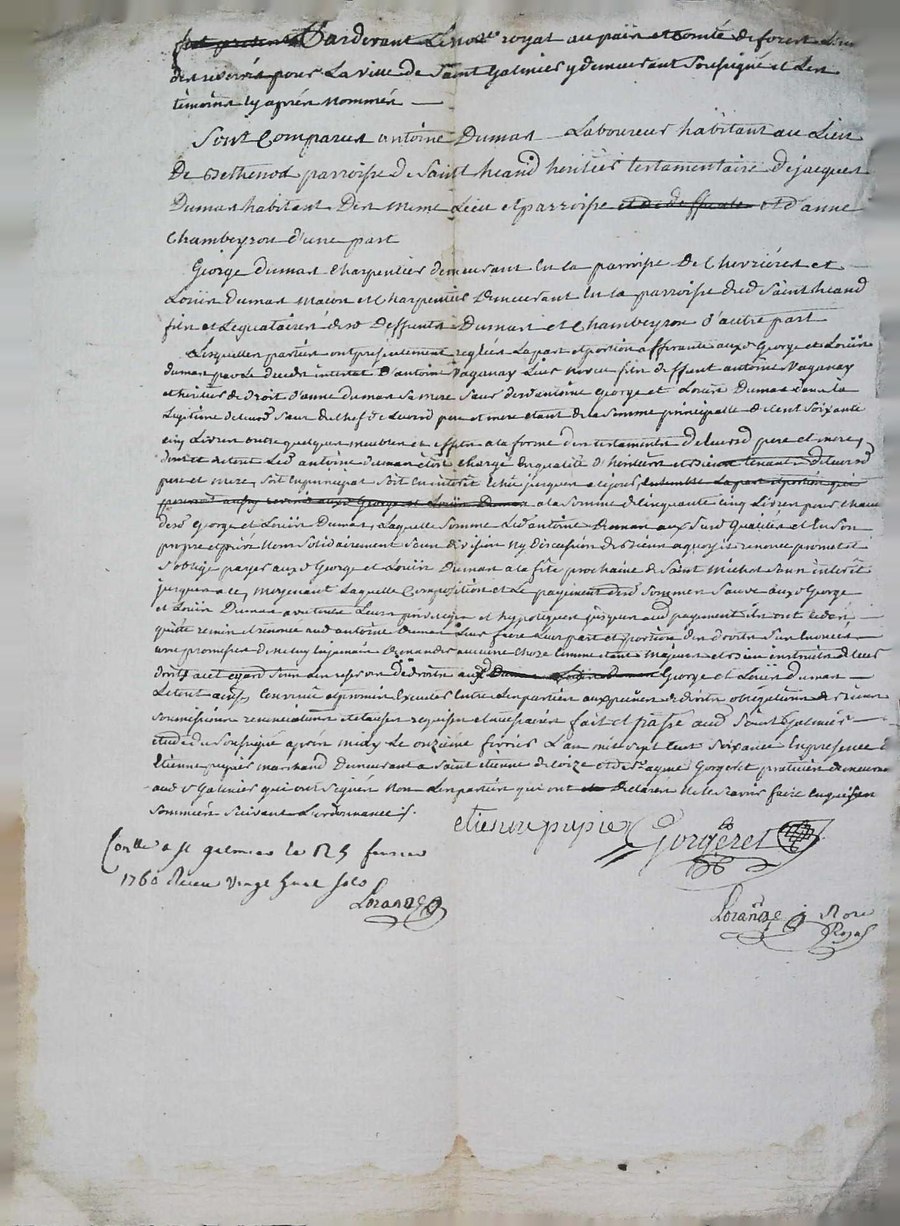 Pardevant Le no.re royal au païs et Comté de forest
des reservés pour La ville de Saint Galmier y demeurant Soussigné et Les
temoins cy apres nommés
Sont Comparus antoine Dumas Laboureur habitant au Lieu
De Bethenod parroisse de Saint heand heritier testamentaire de jacques
Dumas habitant Des meme Lieu et parroisse et d'anne
Chambeyron d'une part
George dumas Charpentier demeurant En La parroisse De Chevrieres et
Louis Dumas Macon et Charpentier Demeurant En La parroisse dud Saint heand
fils et Legataires desd Deffunts Dumas et Chambeyron d'autre part
Lesquelles parties ont presentement reglées La part et portion afferante auxd George et Louis
dumas par Le deceds intestat D'antoine Vaganay Leur neveu fils de deffunt antoine Vaganay
et heritier de Droit d'anne dumas Sa mere Sœur desd antoine George et Louis Dumas dans La
Legitime de lad Sœur du Chef de Leursd pere et mere etant de La Somme principalle de Cent Soixante
cinq Livres outre quelques meubles et effets a la forme des testaments de leursd pere et mere,
dont Led antoine dumas etoit Chargé en qualité d'heritier
pere et mere, soit en principal soit en interet Echu jusques a ce jour, a La Somme de Cinquante Cinq Livres pour chacun
desd George et Louis Dumas, Laquelle Somme Led antoine Dumas aux Susd Qualités et En Son
propre et privé nom Solidairement Sans division ny discussion de biens a quoy il renonce promet et
S'oblige payer auxd George et Louis Dumas a la fête prochaine de Saint Michel Sans interêt
jusques a ce, Moyenant Laquelle Composition et Le payement desd Sommes Sauve auxd George
et Louis Dumas Leurs privileges et hypoteques jusques aud payement ils ont Cedé,
quitté remis et renoncé aud antoine dumas Leur frere Leur part et portion des droits
avec promesse de ne luy jamais demander aucune Chose Comme etant Majeurs et bien instruits de leurs
droits a cet egard Sans reserve De droits auxd George et Louis dumas
Le tout ainsy Convenu et promis Executer Entre Les parties aux peines de droit obligations de biens
Soumissions renonciations et clauses requises et necessaires fait et passé aud Saint Galmier
etude du Soussigné apres midy Le onzieme fevrier L'an mil sept Cent Soixante En presence d'
Etienne pupier marchand Demeurant a Saint etienne et de Sr aymé Gorgeret praticien demeurant
aud St Galmier qui ont Signés non Les parties qui ont Declarés ne le Scavoir faire Enquises et
Sommées Suivant L'ordonnance.
etienne pupier Gorgeret
Con.lle a St galmier le fevrier
1760 Recu Vingt huit sols
Loranze
Loranze No.re
Royal